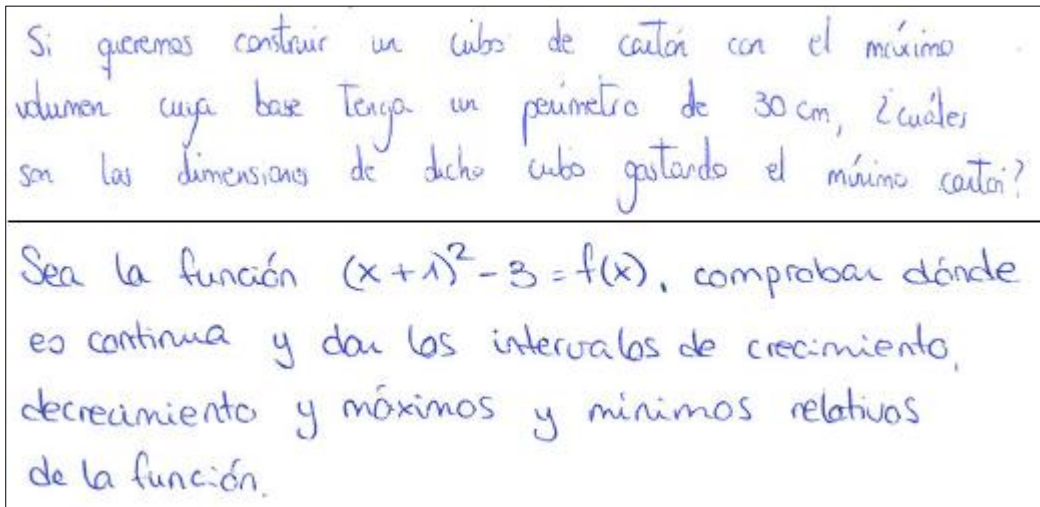 Si queremos construir un cubo de cartón con el máximo
volumen cuya base tenga un perímetro de 30 cm, ¿cuáles
son las dimensiones de dicho cubo gastando el mínimo cartón?
Sea la función (x+1)² - 3 = f(x), comprobar dónde
es continua y dar los intervalos de crecimiento,
decrecimiento y máximos y mínimos relativos
de la función.